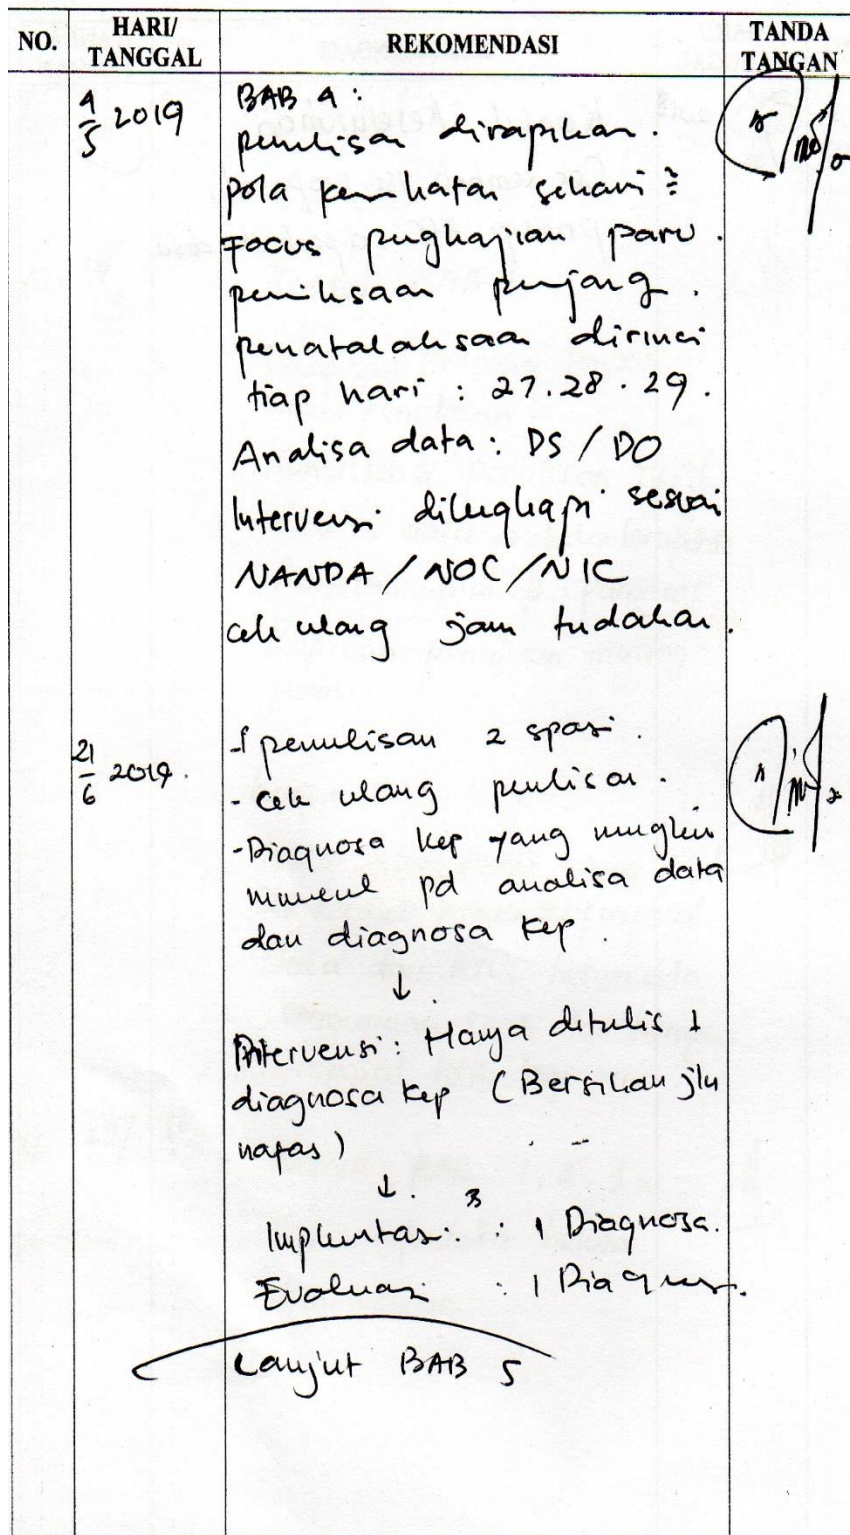 NO. HARI/ TANGGAL REKOMENDASI TANDA TANGAN
4/5 2019 BAB 4:
penulisan dirapihan.
pola kesehatan sehari =
Focus pengkajian paru.
periksaan penjang.
penatalaksaan dirinci
tiap hari : 27.28.29.
Analisa data : DS / DO
Intervensi dilengkapi sesuai
NANDA / NOC / NIC
cek ulang jam tindakan.
21/6 2019. - penulisan 2 spasi.
- cek ulang penulisan.
- Diagnosa kep yang mungkin
muncul pd analisa data
dan diagnosa kep.
↓
Intervensi : Hanya ditulis 1
diagnosa kep (Bersihan jln
nafas)
↓
Implentasi : 1 Diagnosa.
Evaluasi : 1 Diagnosa.
Lanjut BAB 5